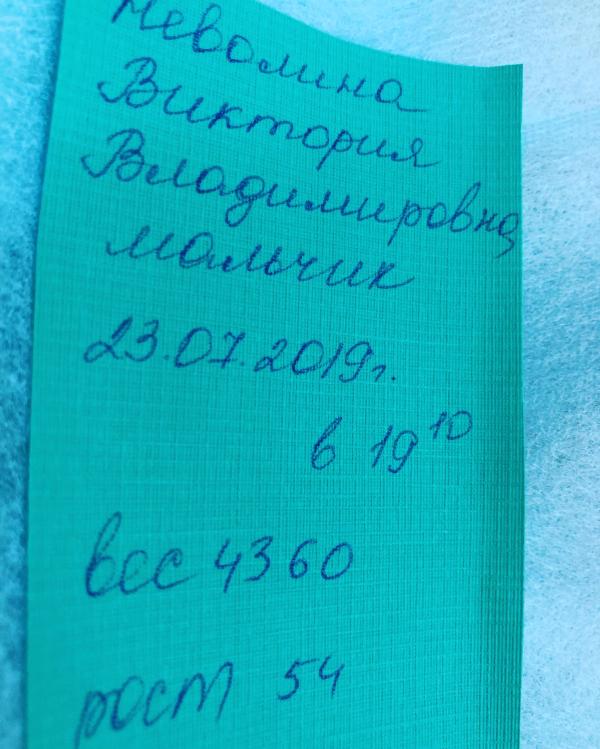 Неволина
Виктория
Владимировна
мальчик
23.07.2019г.
в 19 10
вес 4360
рост 54